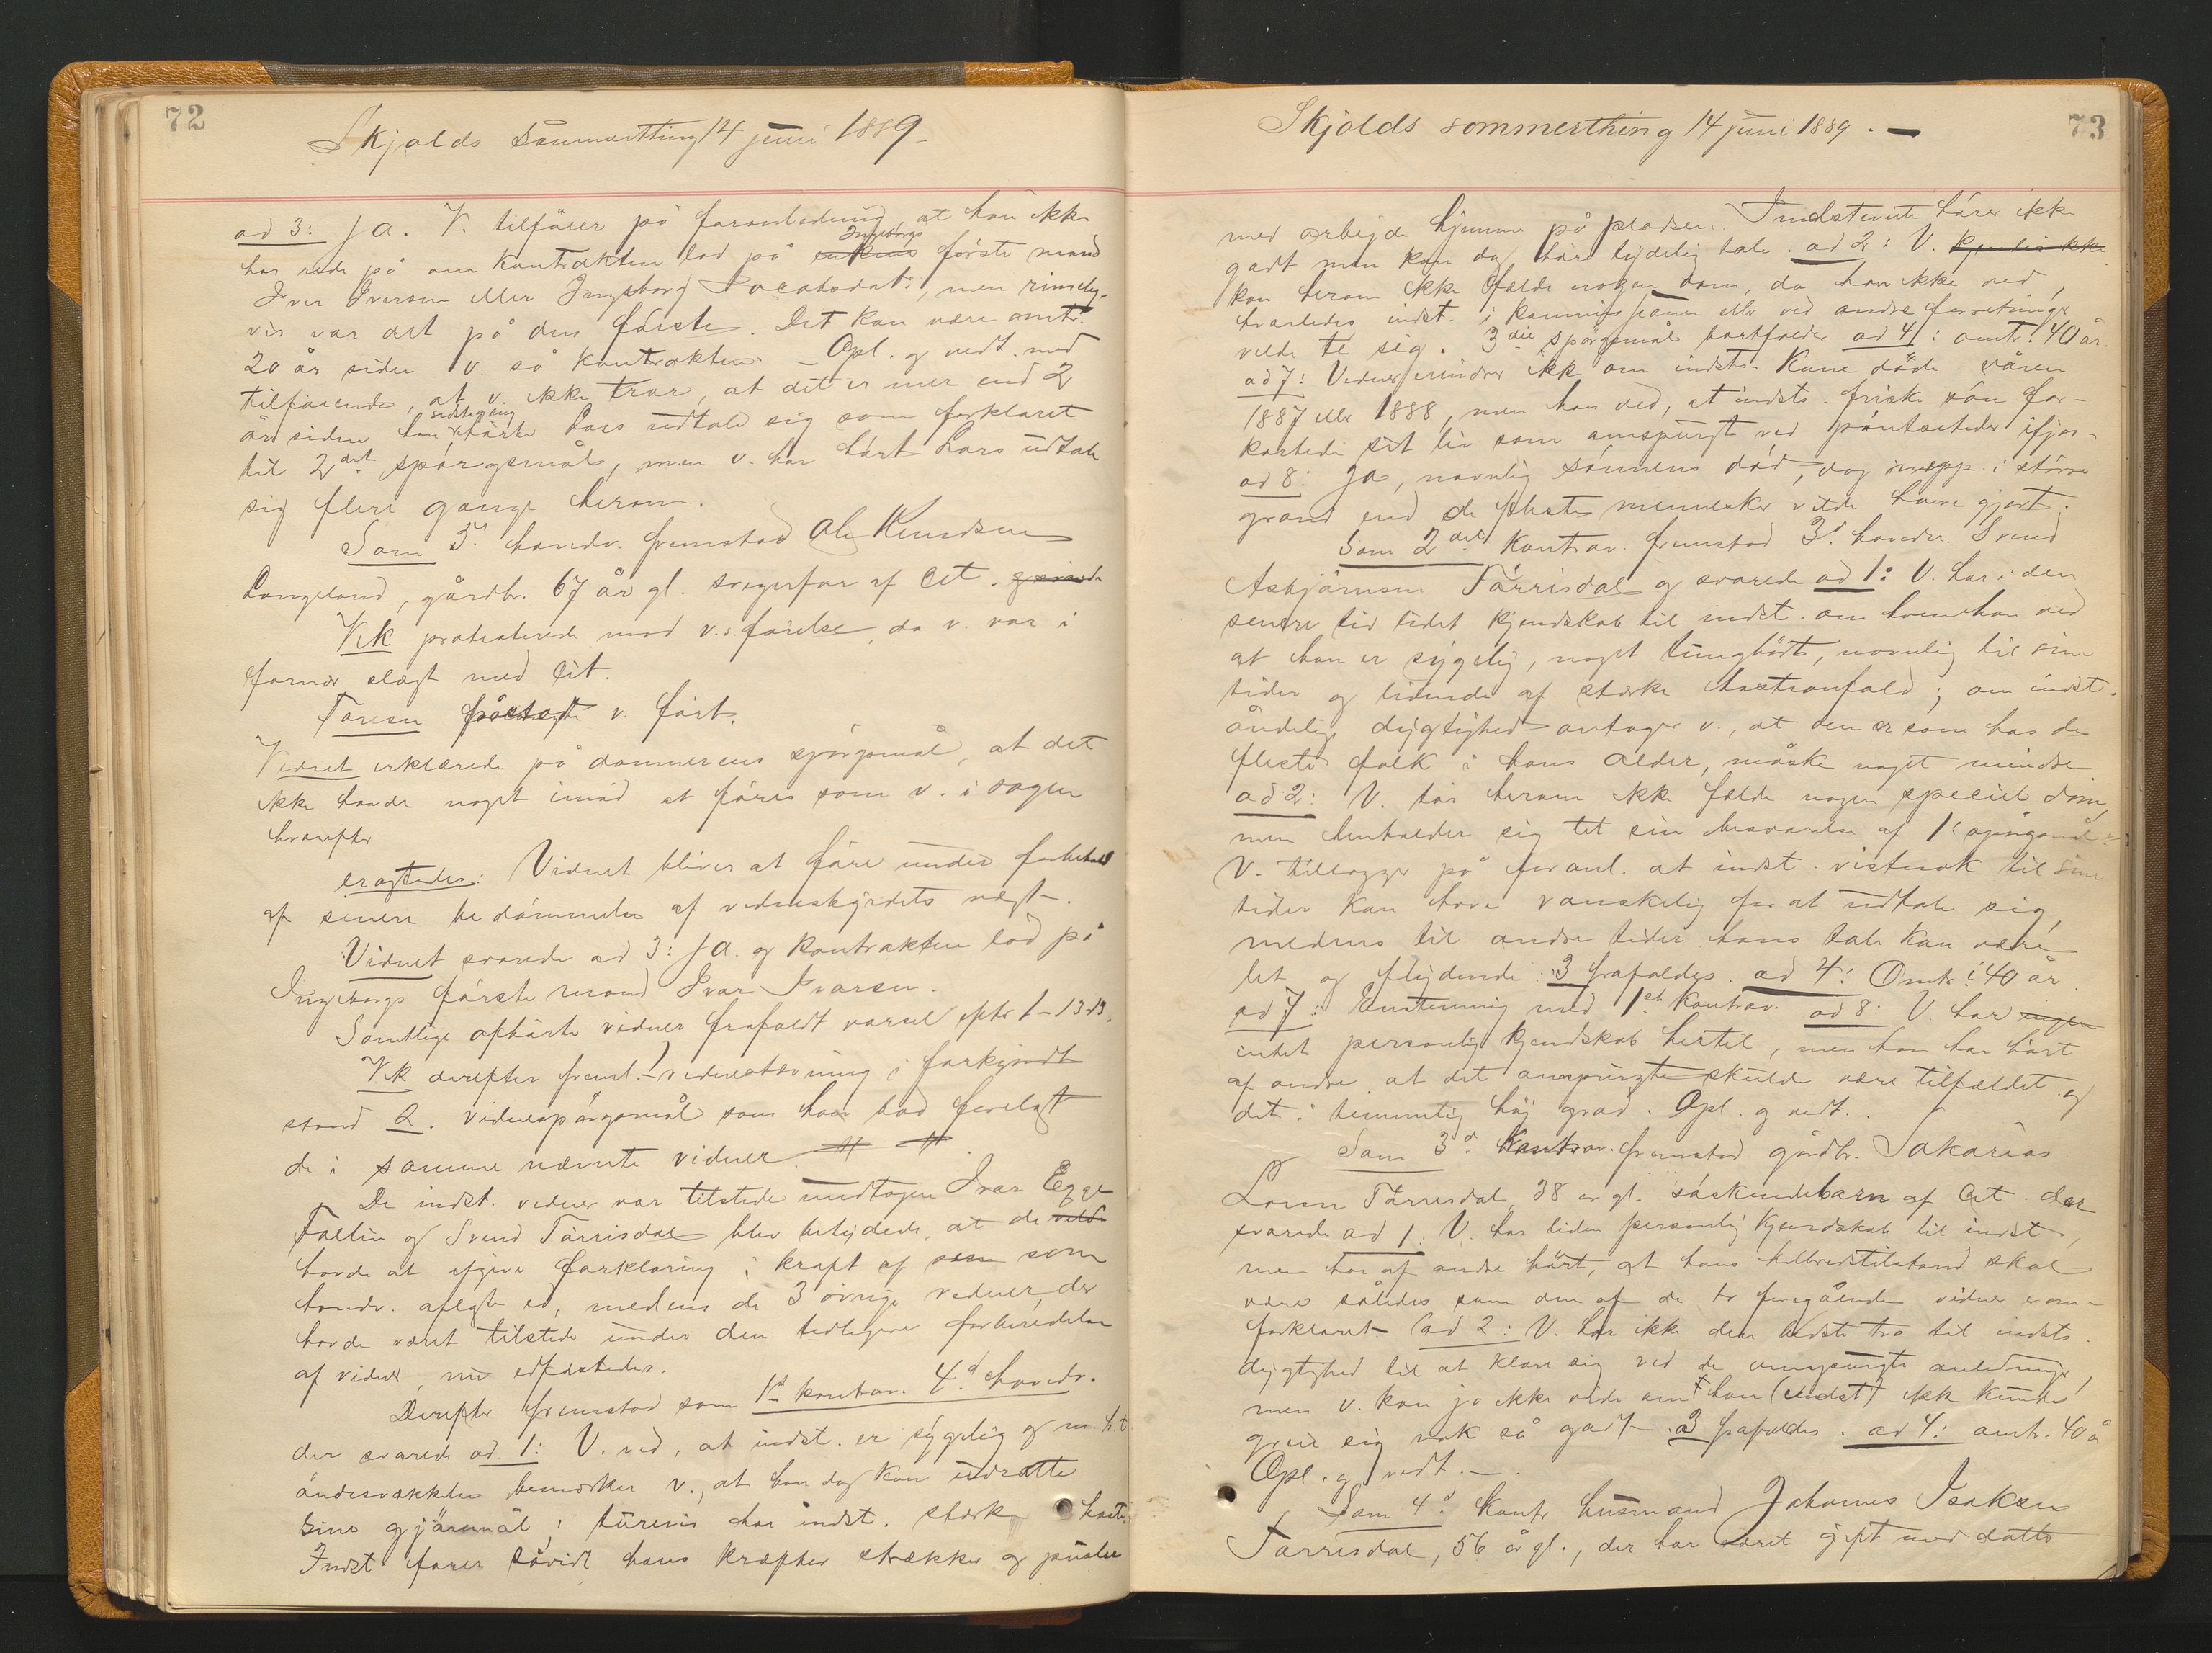 72
Skjolds sommerthing 14 juni 1889 –
ad 3: Ja. V. tilföier på foranledning, at han ikke
har rede på om kontrakten lød på enkens Ingeborgs første mand
Iver Iversen eller Ingeborg, men rimelig-
vis var det på den første. Det kan være omtr.
20 år siden v. så kontrakten. – Opl. og vedt. med
tilføiende, at v. ikke tror, at det er mer end 2
år siden han sidstegang hørte Lars udtale sig som forklaret
til 2det spörgsmål, men v. har hørt Lars udtale
sig flere gange herom.
Som 5. hovedv. fremstod Ole Knudsen
Langeland, gårdbr. 67 år gl. svigerfar af Cit.
Vik protesterede mod v.s. førelse, da v. var i
fornær slægt med Cit.
Toresen påstod v. ført.
Vidnet erklærede på dommerens spörgsmål, at det
ikke havde noget imod at føres som v. i sagen
hvorefter
eragtedes: Vidnet bliver at føre under forbehold
af senere bedømmelse af vidneskyrdets vægt –.
Vidnet svarede ad 3: Ja. og kontrakten lød på
Ingeborgs første mand Ivar Ivarsen.
Samtlige afhørte vidner frafaldt varsel efter 1-13-13.
Vik derefter freml. vidnestævning i forkyndt
stand 2. vidnespørgsmål som han bad forelagt
de i samme nævnte vidner.
De indst. vidner var tilstede undtagen Ivar Egge
Follin og Svend Tørrisdal blev betydede, at de vilde
havde at afgive forklaring i kraft af som
hovedv. aflagte ed, medens de 3 øvrige vidner, der
havde været tilstede under den tidligere forberedelse
af vidner, nu edfæstedes.
Derefter fremstod som 1st kontrav. 4d hovedv.
der svarede ad 1: V. ved, at indst. er sygelig og m. h. t.
åndssvækkelse bemærker v., at han dog kan udrette
sine gjøremål; turevis har indst. stærk hoste.
Indst. farer såvidt hans kræfter strækker og pusler
73
Skjolds sommerthing 14 juni 1889. –
med arbejde hjemme på pladsen. Indstevnte hører ikke
godt men kan dog føre tydelig tale. ad 2: V. kjender ikke
kan herom ikke fælde nogen dom, da han ikke ved,
hvorledes indst. i kommissjoner eller ved andre forretninger
vilde te sig. 3die spörgsmål bortfalder ad 4: omtr. 40 år.
ad 7: Vidnet erindrer ikke om indsts. kone døde våren
1887 eller 1888, men han ved, at indsts. friske søn for-
kortede sit liv som omspurgt ved ifjor.
ad 8: Ja, navnlig sønnens død, dog neppe i større
grad end de fleste mennesker vilde have gjort.
Som 2det kontrav. fremstod 3d. hovedv. Svend
Asbjørnsen Tørrisdal og svarede ad 1: V. har i den
senere tid lidet kjendskab til indst. om hvem han ved
at han er sygelig, noget tunghørt, navnlig til sine
tider og lidende af stærke hosteanfald; om indst.
åndelig dygtighed antager v., at den er som hos de
fleste folk i hans alder, måske noget mindre
ad 2: V. tør herom ikke fælde nogen speciel dom,
men henholder sig til sin besvarelse af 1. spörgsmål
V. tillægger på foranl. at indst. vistnok til sine
tider kan have vanskelig for at udtale sig,
medens til andre tider hans tale kan være
let og flydende. 3 frafaldes. ad 4: Omtr. 40 år.
ad 7: Enstemmig med 1st kontrav. ad 8: V. har ingen
intet personlig kjendskab hertil, men han har hørt
af andre, at det omspurgte skulde være tilfældet og
det i temmelig høj grad. Opl. og vedt.
Som 3d. kontrav. fremstod gårdbr. Sakarias
Larsen Tørrisdal, 38 år gl. søskendebarn af Cit. der
svarede ad 1: V. har liden personlig kjendskab til indst.,
men har af andre hørt, at hans helbredstilstand skal
være således som den af de to foregående vidner er om-
forklaret. ad 2: V. har ikke den bedste tro til indsts.
dygtighed til at klare sig ved de omspurgte anledninger,
men v. kan jo ikke vide om han (indst) ikke kunde
greie sig nok så godt. 3 frafaldes. ad 4: omtr. 40 år
Opl. og vedt. –
Som 4d. kontr husmand Johannes Isaksen
Tørrisdal, 56 år gl., der har været gift med datter